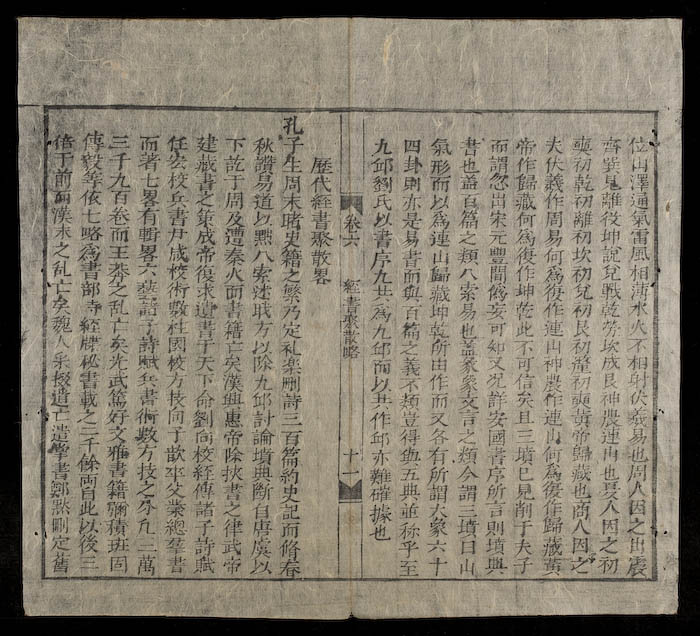 位山澤通氣雷風相薄水火不相射伏羲易也周人因之出震
齊巽見離役坤說兌戰乾勞坎成艮神農連山也夏人因之初
奭初乾初離初坎初兌初艮初釐初巽黃帝歸藏也商人因之
夫伏羲作周易何為復作連山神農作連山何為復作歸藏黃
帝作歸藏何為復作坤乾此不可信矣且三墳已見削于夫子
而謂忽出宋元豐間偽妄可知又况許安國書序所言則墳典
書也蓋百篇之類八索易也蓋彖象文言之類今謂三墳曰山
氣形而以為連山歸藏坤乾所由作而又各有所謂大象六十
四卦則亦是易書而與百篇之義不類豈得與五典並称乎至
九邱劉氏以書序九共為九邱而以共作邱亦難確據也
卷六 經書聚散略 十一
歷代經書聚散畧
孔子生周末睹史籍之繁乃定礼楽刪詩三百篇約史記而脩春
秋讚易道以黜八索述職方以除九邱討論墳典斷自唐虞以
下訖于周及遭秦火而書籍亡矣漢興惠帝除挾書之律武帝
建藏書之策成帝復求遺書于天下命劉向校經傳諸子詩賦
任宏校兵書尹咸校術數李柱國校方技向子歆卒父業總羣書
而著七畧有輯畧六藝諸子詩賦兵書術數方技之分凡一萬
三千九百卷而王莽之乱亡矣光武篤好文雅書籍彌積班固
傅毅等依七略為書部寺經牒秘書載之二千餘両自此以後三
倍于前而漢末之乱亡矣魏人采掇遺亡造肇書鄭黙刪定舊